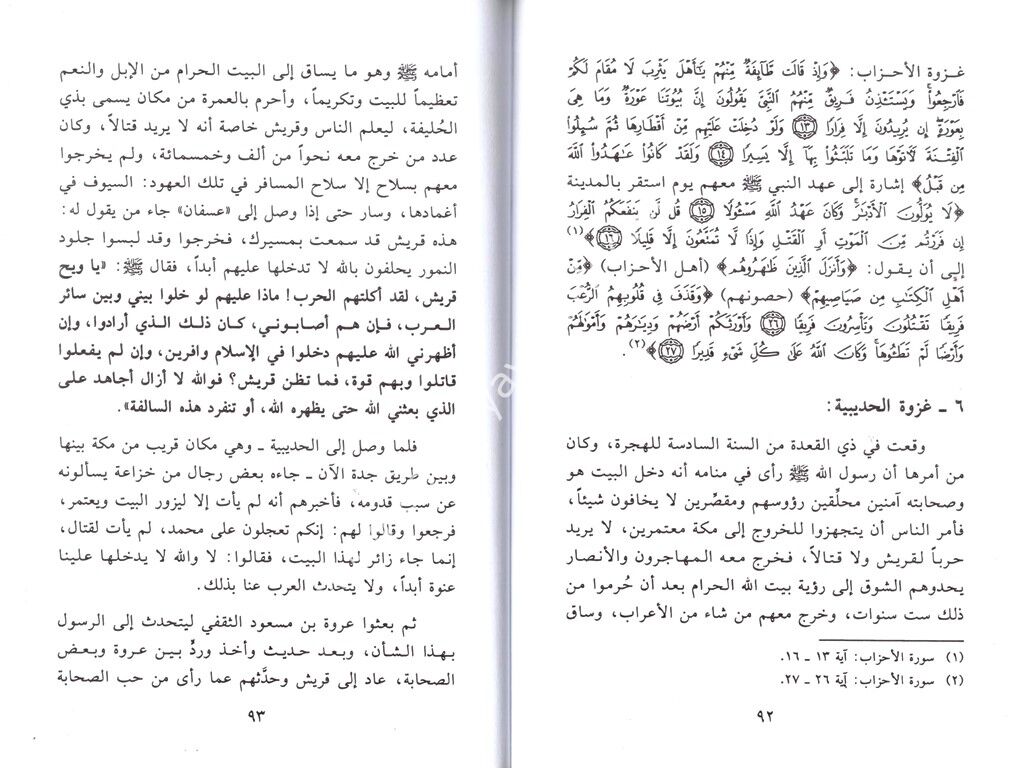 غزوة الأحزاب: ﴿وَإِذْ قَالَت طَّآئِفَةٌ مِّنْهُمْ يَٰٓأَهْلَ يَثْرِبَ لَا مُقَامَ لَكُمْ
فَٱرْجِعُوا۟ۚ وَيَسْتَـْٔذِنُ فَرِيقٌ مِّنْهُمُ ٱلنَّبِىَّ يَقُولُونَ إِنَّ بُيُوتَنَا عَوْرَةٌ وَمَا هِىَ
بِعَوْرَةٍۖ إِن يُرِيدُونَ إِلَّا فِرَارًا ﴿١٣﴾ وَلَوْ دُخِلَتْ عَلَيْهِم مِّنْ أَقْطَارِهَا ثُمَّ سُئِلُوا۟
ٱلْفِتْنَةَ لَـَٔاتَوْهَا وَمَا تَلَبَّثُوا۟ بِهَآ إِلَّا يَسِيرًا ﴿١٤﴾ وَلَقَدْ كَانُوا۟ عَٰهَدُوا۟ ٱللَّهَ
مِن قَبْلُ﴾ إشارة إلى عهد النبي ﷺ معهم يوم استقر بالمدينة
﴿لَا يُوَلُّونَ ٱلْأَدْبَٰرَۚ وَكَانَ عَهْدُ ٱللَّهِ مَسْـُٔولًا ﴿١٥﴾ قُل لَّن يَنفَعَكُمُ ٱلْفِرَارُ
إِن فَرَرْتُم مِّنَ ٱلْمَوْتِ أَوِ ٱلْقَتْلِ وَإِذًا لَّا تُمَتَّعُونَ إِلَّا قَلِيلًا ﴿١٦﴾﴾(١)
إلى أن يقول: ﴿وَأَنزَلَ ٱلَّذِينَ ظَٰهَرُوهُم﴾ (أهل الأحزاب) ﴿مِّنْ
أَهْلِ ٱلْكِتَٰبِ مِن صَيَاصِيهِمْ﴾ (حصونهم) ﴿وَقَذَفَ فِى قُلُوبِهِمُ ٱلرُّعْبَ
فَرِيقًا تَقْتُلُونَ وَتَأْسِرُونَ فَرِيقًا ﴿٢٦﴾ وَأَوْرَثَكُمْ أَرْضَهُمْ وَدِيَٰرَهُمْ وَأَمْوَٰلَهُمْ
وَأَرْضًا لَّمْ تَطَـُٔوهَاۚ وَكَانَ ٱللَّهُ عَلَىٰ كُلِّ شَىْءٍ قَدِيرًا ﴿٢٧﴾﴾(٢).
٦ ـ غزوة الحديبية:
وقعت في ذي القعدة من السنة السادسة للهجرة، وكان
من أمرها أن رسول الله ﷺ رأى في منامه أنه دخل البيت هو
وصحابته آمنين محلِّقين رؤوسهم ومقصِّرين لا يخافون شيئاً،
فأمر الناس أن يتجهزوا للخروج إلى مكة معتمرين، لا يريد
حرباً لقريش ولا قتالاً، فخرج معه المهاجرون والأنصار
يحدوهم الشوق إلى رؤية بيت الله الحرام بعد أن حُرموا من
ذلك ست سنوات، وخرج معهم من شاء من الأعراب، وساق
(١) سورة الأحزاب: آية ١٣ ـ ١٦.
(٢) سورة الأحزاب: آية ٢٦ ـ ٢٧.
٩٢
أمامه ﷺ وهو ما يساق إلى البيت الحرام من الإبل والنعم
تعظيماً للبيت وتكريماً، وأحرم بالعمرة من مكان يسمى بذي
الحُليفة، ليعلم الناس وقريش خاصة أنه لا يريد قتالاً، وكان
عدد من خرج معه نحواً من ألف وخمسمائة، ولم يخرجوا
معهم بسلاح إلا سلاح المسافر في تلك العهود: السيوف في
أغمادها، وسار حتى إذا وصل إلى «عسفان» جاء من يقول له:
هذه قريش قد سمعت بمسيرك، فخرجوا وقد لبسوا جلود
النمور يحلفون بالله لا تدخلها عليهم أبداً، فقال ﷺ: «يا ويح
قريش، لقد أكلتهم الحرب! ماذا عليهم لو خلوا بيني وبين سائر
العرب، فإن هم أصابوني، كان ذلك الذي أرادوا، وإن
أظهرني الله عليهم دخلوا في الإسلام وافرين، وإن لم يفعلوا
قاتلوا وبهم قوة، فما تظن قريش؟ فوالله لا أزال أجاهد على
الذي بعثني الله حتى يظهره الله، أو تنفرد هذه السالفة».
فلما وصل إلى الحديبية ـ وهي مكان قريب من مكة بينها
وبين طريق جدة الآن ـ جاءه بعض رجال من خزاعة يسألونه
عن سبب قدومه، فأخبرهم أنه لم يأت إلا ليزور البيت ويعتمر،
فرجعوا وقالوا لهم: إنكم تعجلون على محمد، لم يأت لقتال،
إنما جاء زائر لهذا البيت، فقالوا: لا والله لا يدخلها علينا
عنوة أبداً، ولا يتحدث العرب عنا بذلك.
ثم بعثوا عروة بن مسعود الثقفي ليتحدث إلى الرسول
بهذا الشأن، وبعد حديث وأخذ وردٍّ بين عروة وبعض
الصحابة، عاد إلى قريش وحدَّثهم عما رأى من حب الصحابة
٩٣